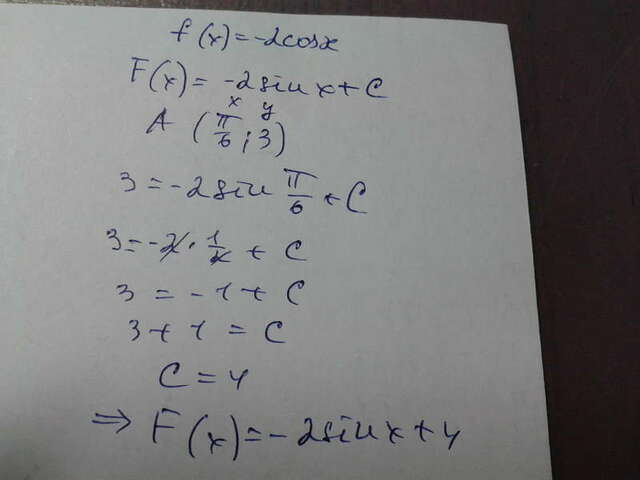 f(x)=-2cosx
F(x)= -2sin x+C
x y
A (π/6; 3)
3=-2sin π/6 + C
3=-2·1/2 + C
3 = -1+ C
3+1 = C
C=4
⇒ F(x)=-2sinx+4